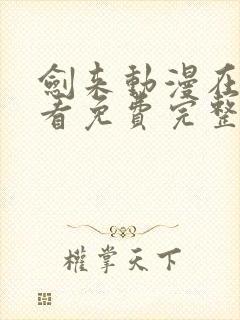 劍來動漫在
看免費完整
權掌天下